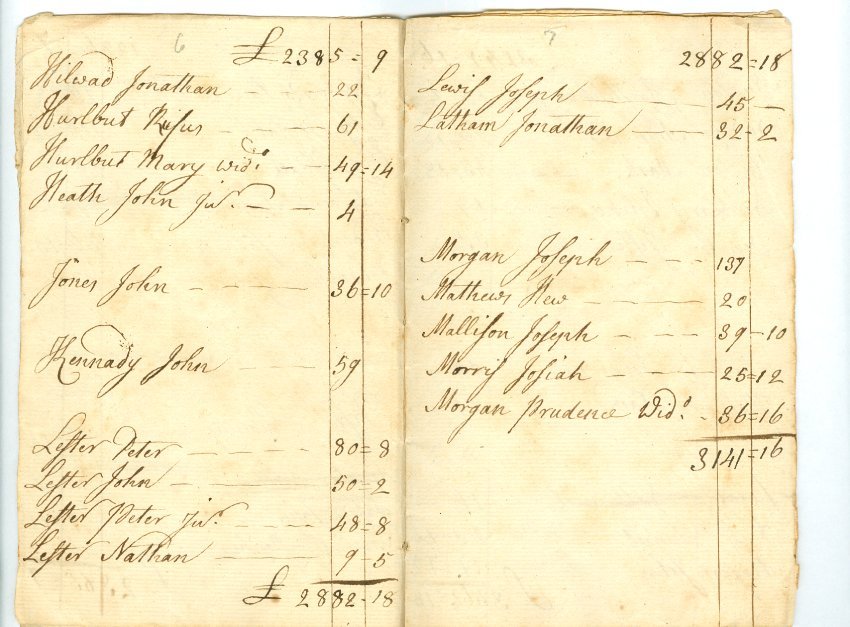 6
£ 2385=9
Hilwad Jonathan 22
Hurlbut Rufus 61
Hurlbut Mary Wid.o 49=14
Heath John Jur. 4
Jones John 36=10
Kennady John 59
Lester Peter 80=8
Lester John 50=2
Lester Peter Jur. 48=8
Lester Nathan 9-5
£ 2882-18
7
2882=18
Lewis Joseph 45 —
Latham Jonathan 32-2
Morgan Joseph 137
Mathews New 20
Mallison Joseph 39-10
Morris Josiah 25=12
Morgan Prudence Wid.o 36=16
3141=16